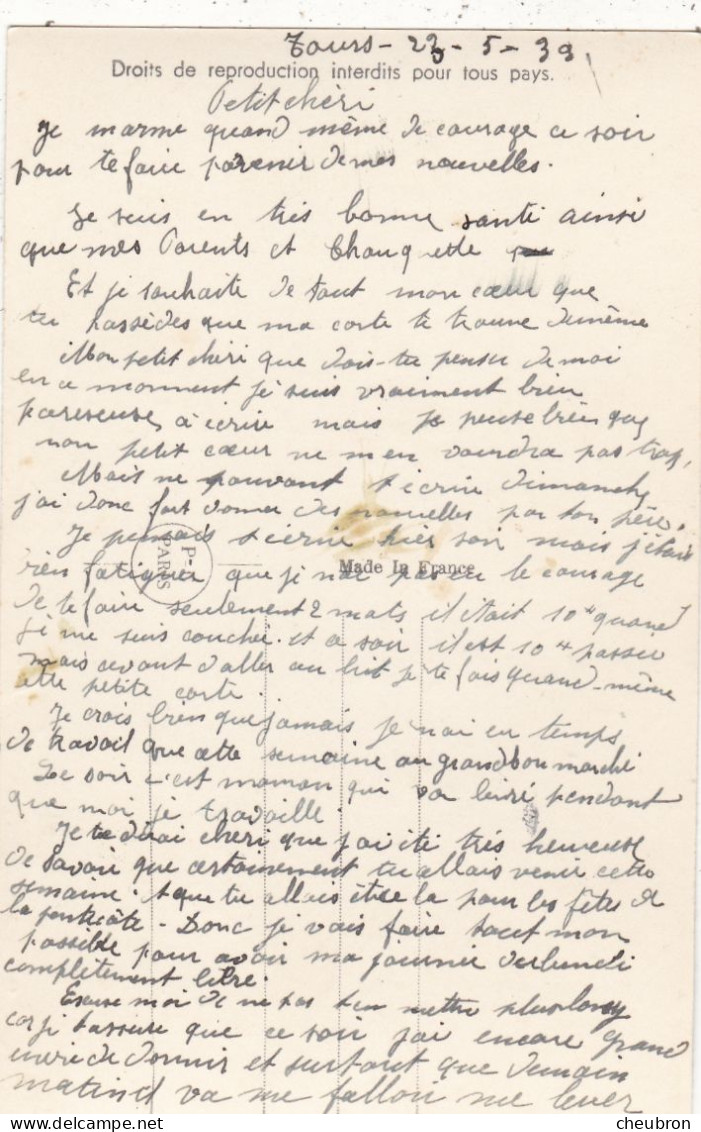 Tours - 23 - 5 - 39
Droits de reproduction interdits pour tous pays.
Petit chéri
Je marme quand même de courage ce soir
pour te faire parvenir de mes nouvelles.
Je suis en très bonne santé ainsi
que mes Parents et Chouquette
Et je souhaite de tout mon cœur que
tu possèdes que ma carte te trouve de même
Mon petit chéri que dois-tu penser de moi
en ce momment je suis vraiment bien
paresseuse à écrire mais je pense bien que
mon petit cœur ne m'en voudra pas trop.
Mais ne pouvant t'écrire dimanche
j'ai donc fait donner des nouvelles par ton père.
Je pensais t'écrire hier soir mais j'étais
bien fatiguer que je n'ai pas eu le courage
P-
PARIS
Made In France
de te faire seulement 2 mots il était 10H quand
je me suis couchée. et ce soir il est 10H passée
mais avant d'aller au lit je te fais quand-même
cette petite carte.
Je crois bien que jamais je n'ai eu temps
de travail que cette semaine au grand bon marché
Le soir c'est maman qui va pendant
que moi je travaille.
Je te dirai chéri que j'ai été très heureuse
de savoir que certainement tu allais venir cette
semaine. que tu allais être la pour les fêtes de
la pentecôte - Donc je vais faire tout mon
possible pour avoir ma journée de lundi
complètement libre.
Excuse moi de ne pas t'en mettre plus long
car je t'assure que ce soir j'ai encore grand
envie de dormir et surtout que demain
matin il va me falloir me lever
cheubron